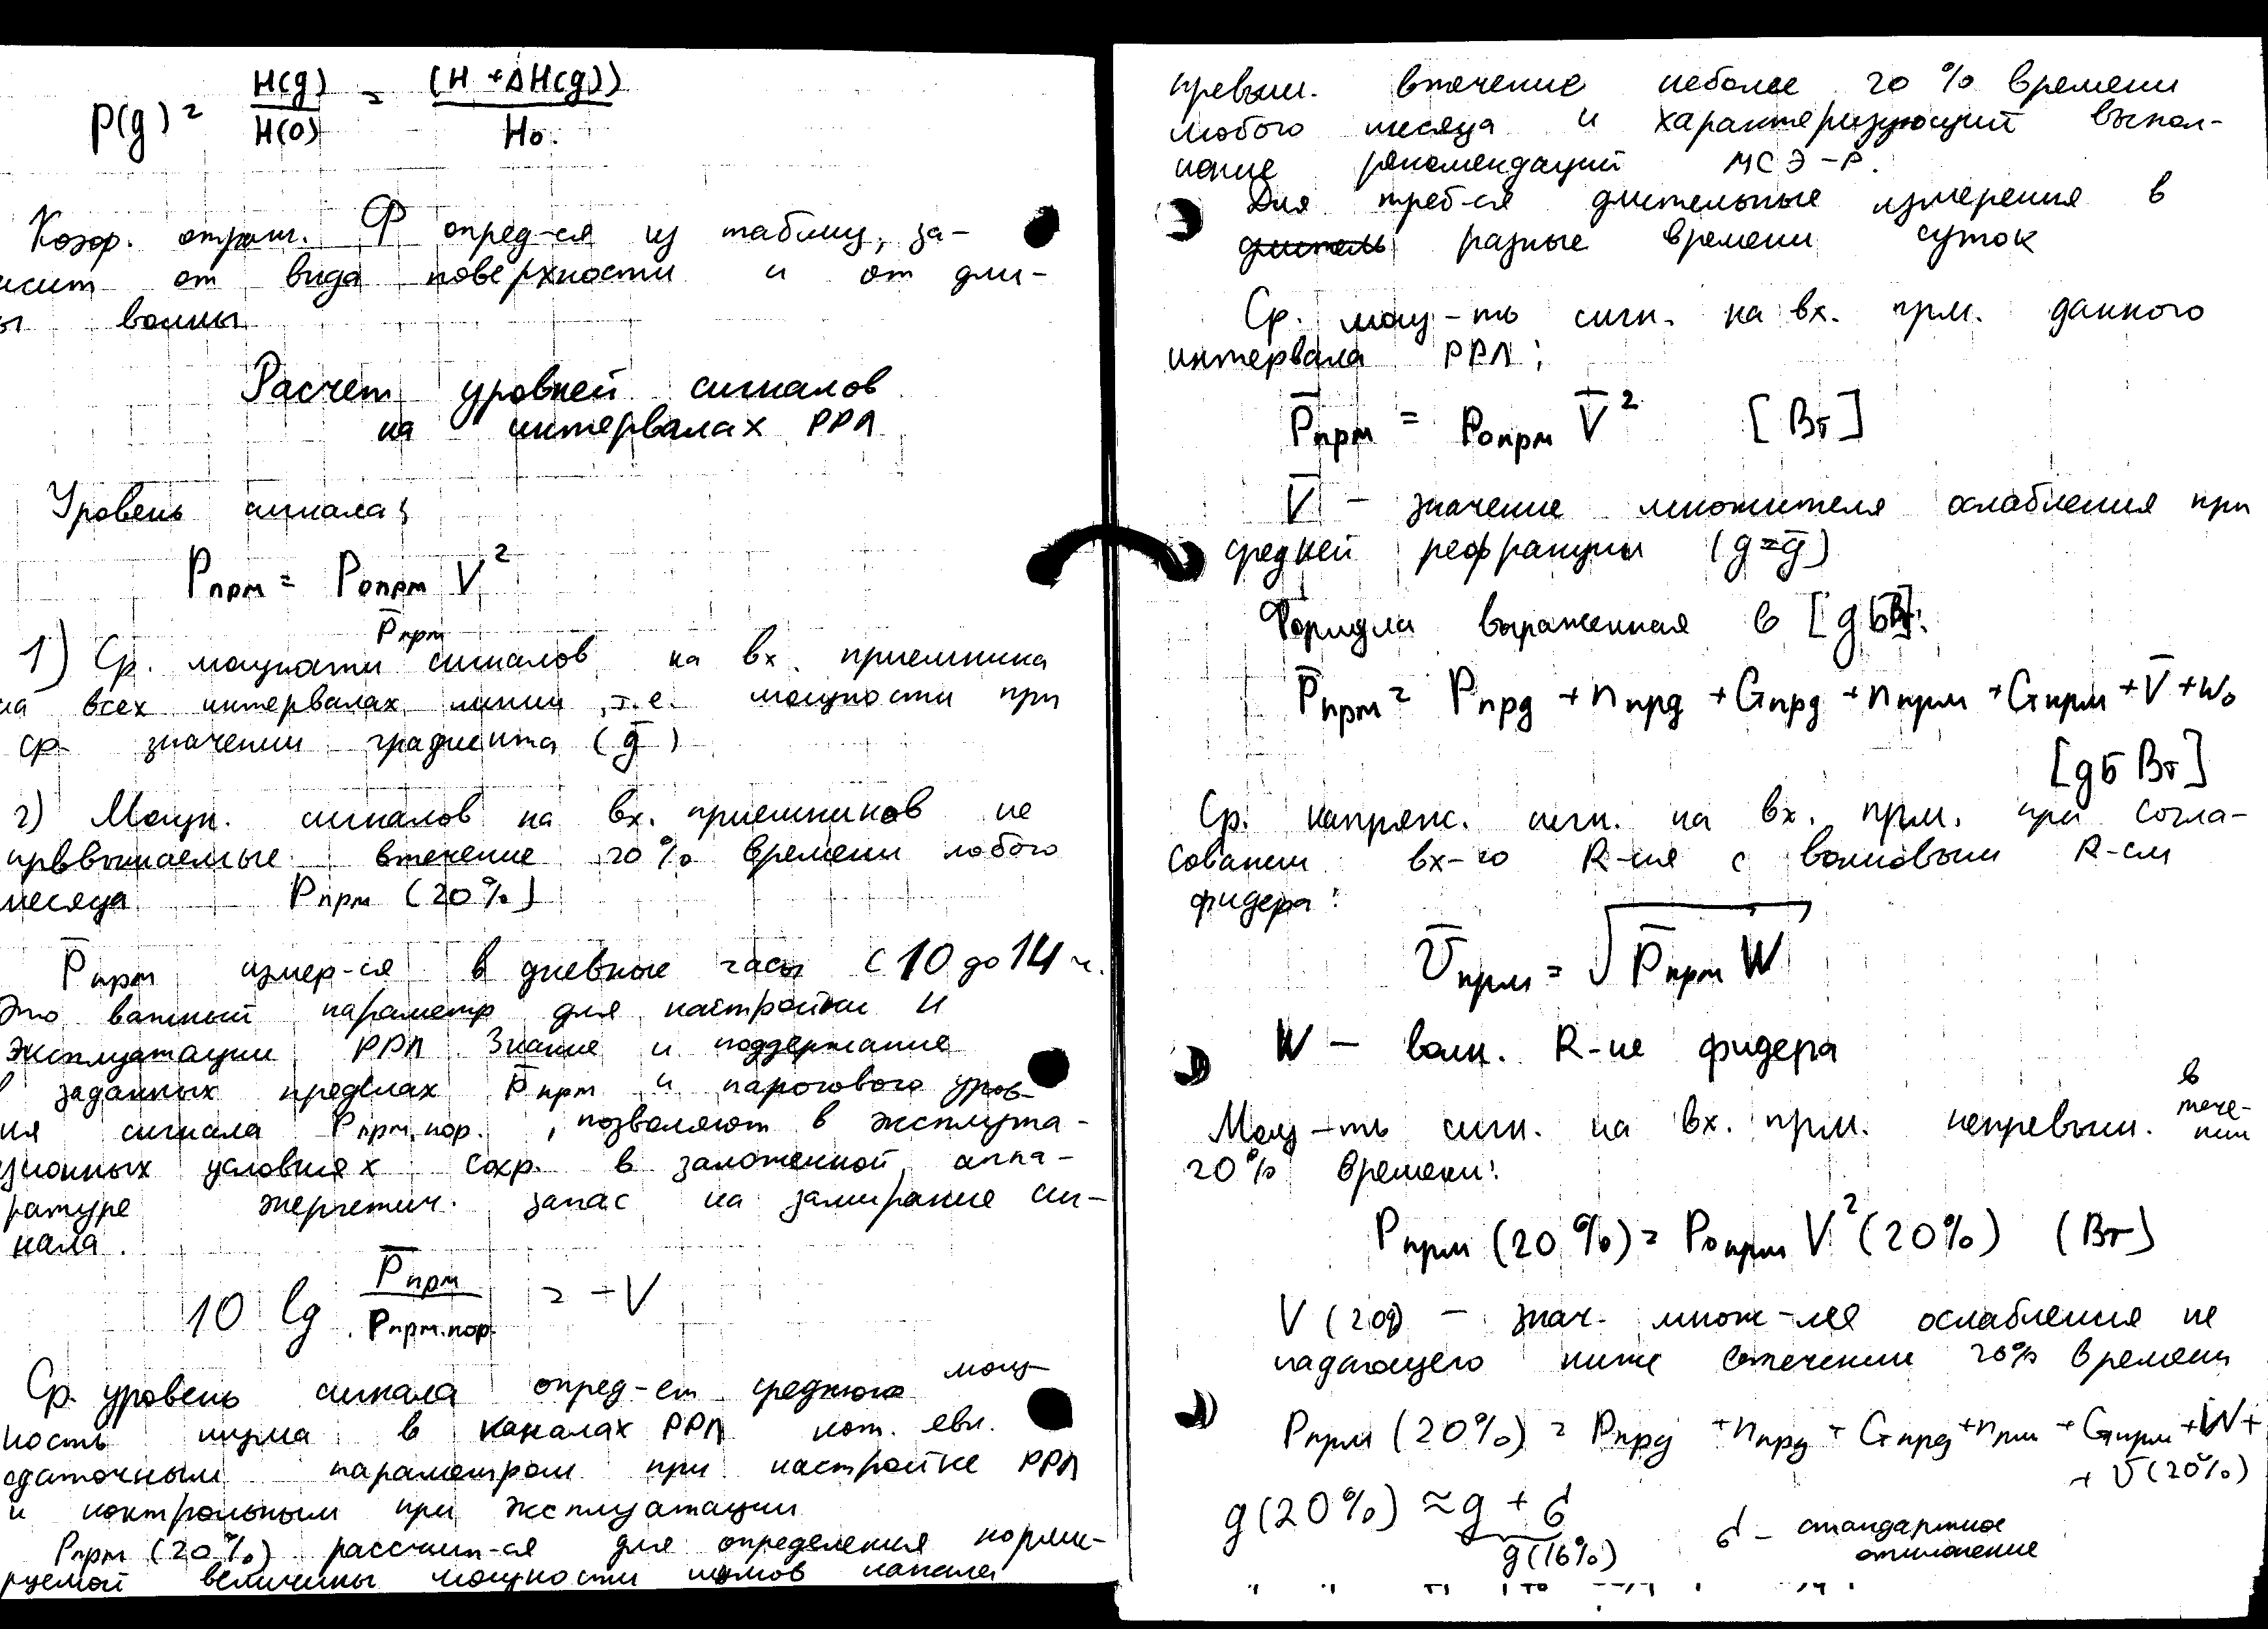 p(g) = H(g)/H(0) = (H + ΔH(g))/H₀.
Коэф. отраж. Ф опред-ся из таблиц, за-
исит от вида поверхности и от дли-
ы волны
Расчет уровней сигналов
на интервалах РРЛ
Уровень сигнала:
Pпрм = P₀прм V²
P̅прм
1) Ср. мощности сигналов на вх. приемника
на всех интервалах линии, т.е. мощности при
ср. значении градиента (g̅)
2) Мощн. сигналов на вх. приемников не
првышаемые втечение 20% времени любого
месяца Pпрм (20%)
P̅прм измер-ся в дневные часы с 10 до 14 ч.
Это важный параметр для настройки и
эксплуатации РРЛ. Знание и поддержание
в заданных пределах P̅прм и парогового уров-
ня сигнала Pпрм.пор., позволяют в эксплута-
ционных условиях сохр. в заложенной аппа-
ратуре энергетич. запас на замирание сиг-
нала.
10 lg P̅прм/Pпрм.пор. = -V
Ср. уровень сигнала опред-ет среднюю мощ-
ность шума в каналах РРЛ кот. явл.
одаточным параметром при настройке РРЛ
и контрольным при эксплуатации
Pпрм (20%) рассчит-ся для определения норми-
руемой величины мощности шумов канала
превыш. втечение неболее 20% времени
любого месяца и характеризующий выпол-
нение рекомендаций МСЭ-Р.
Для треб-ся длительные измерения в
длитель разные времени суток
Ср. мощ-ть сигн. на вх. прм. данного
интервала РРЛ:
P̅прм = P₀прм V̅² [Вт]
V̅ - значение множителя ослабления при
средней рефракции (g=g̅)
Формула выраженная в [дБВт]:
P̅прм = Pпрд + nпрд + Gпрд + nпрм + Gпрм + V̅ + W₀
[дБВт]
Ср. напряж. сигн. на вх. прм. при согла-
совании вх-го R-ия с волновым R-ем
фидера:
U̅прм = √P̅прм W
W - волн. R-ие фидера
Мощ-ть сигн. на вх. прм. непревыш. в тече-
нии
20% времени:
Pпрм (20%) = P₀прм V² (20%) (Вт)
V (20%) - знач. множ-ля ослабления не
падающего ниже втечении 20% времени
Pпрм (20%) = Pпрд + nпрд + Gпрд + nпрм + Gпрм + W +
+ V (20%)
g(20%) ≈ g + σ σ - стандартное
g(16%) отклонение